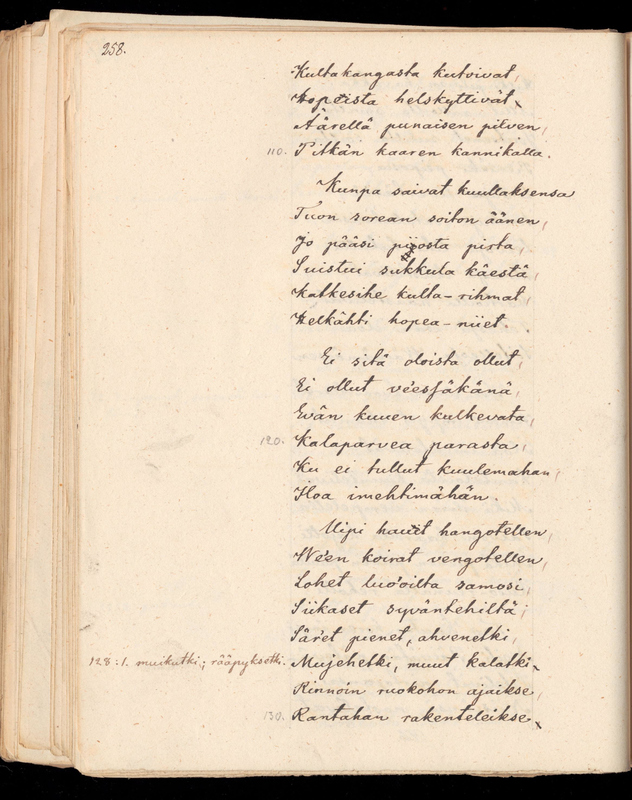 258.
Kultakangasta kutoivat,
Hopeista helskyttivät,
Äärellä punaisen pilven,
110. Pitkän kaaren kannikalla.
Kunpa saivat kuullaksensa
Tuon sorean soiton äänen,
Jo pääsi piiosta pirta,
Suistui sukkula käestä,
Katkesihe kulta-rihmat,
Helkähti hopea-niiet.
Ei sitä oloista ollut,
Ei ollut ve'essäkänä,
Evän kuuen kulkevata,
120. Kalaparvea parasta,
Ku ei tullut kuulemahan,
Iloa imehtimähän.
Uipi hauit hangotellen,
We'en koirat vengotellen,
Lohet luo'oilta samosi,
Siikaset syväntehiltä;
Sär'et pienet, ahvenetki,
128: l. muikutki; rääpyksetki. Mujehetki, muut kalatki,
Rinnoin ruokohon ajaikse,
130. Rantahan rakenteleikse,